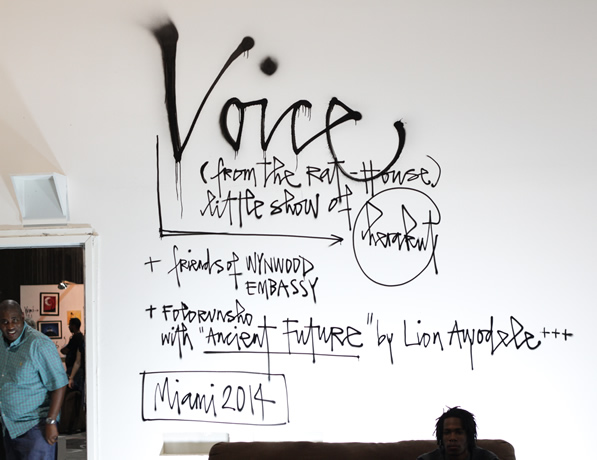 Voice
(from the Rat-House)
little show of herakut
+ friends of WYNWOOD
EMBASSY
+ FOTORUNSHO
with "Ancient Future" by Lion Ayodele +++
Miami 2014